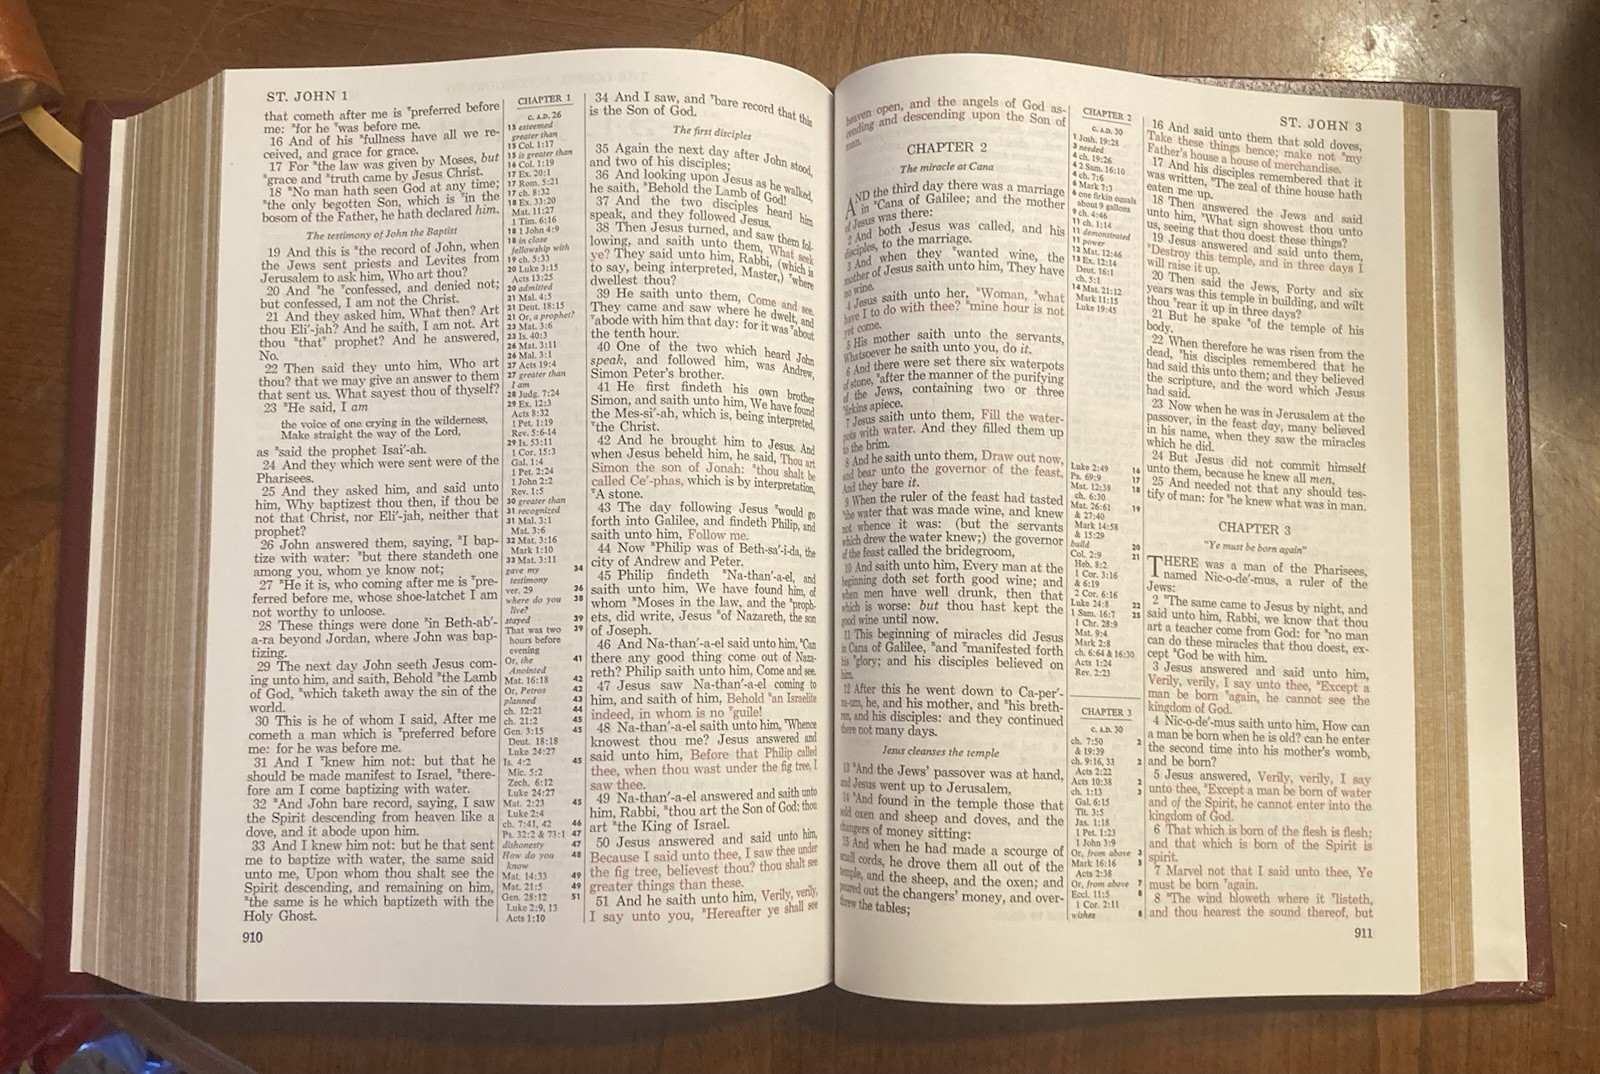 ST. JOHN 1
that cometh after me is preferred before
me: for he was before me.
16 And of his fullness have all we re-
ceived, and grace for grace.
17 For the law was given by Moses, but
grace and truth came by Jesus Christ.
18 No man hath seen God at any time;
the only begotten Son, which is in the
bosom of the Father, he hath declared him.
The testimony of John the Baptist
19 And this is the record of John, when
the Jews sent priests and Levites from
Jerusalem to ask him, Who art thou?
20 And he confessed, and denied not;
but confessed, I am not the Christ.
21 And they asked him, What then? Art
thou Eli′-jah? And he saith, I am not. Art
thou that prophet? And he answered,
No.
22 Then said they unto him, Who art
thou? that we may give an answer to them
that sent us. What sayest thou of thyself?
23 He said, I am
the voice of one crying in the wilderness,
Make straight the way of the Lord,
as said the prophet Isai′-ah.
24 And they which were sent were of the
Pharisees.
25 And they asked him, and said unto
him, Why baptizest thou then, if thou be
not that Christ, nor Eli′-jah, neither that
prophet?
26 John answered them, saying, I bap-
tize with water: but there standeth one
among you, whom ye know not;
27 He it is, who coming after me is pre-
ferred before me, whose shoe-latchet I am
not worthy to unloose.
28 These things were done in Beth-ab′-
a-ra beyond Jordan, where John was bap-
tizing.
29 The next day John seeth Jesus com-
ing unto him, and saith, Behold the Lamb
of God, which taketh away the sin of the
world.
30 This is he of whom I said, After me
cometh a man which is preferred before
me: for he was before me.
31 And I knew him not: but that he
should be made manifest to Israel, there-
fore am I come baptizing with water.
32 And John bare record, saying, I saw
the Spirit descending from heaven like a
dove, and it abode upon him.
33 And I knew him not: but he that sent
me to baptize with water, the same said
unto me, Upon whom thou shalt see the
Spirit descending, and remaining on him,
the same is he which baptizeth with the
Holy Ghost.
910
CHAPTER 1
C. A.D. 26
15 esteemed
greater than
15 Col. 1:17
15 is greater than
16 Col. 1:19
17 Ex. 20:1
17 Rom. 5:21
17 ch. 8:32
18 Ex. 33:20
Mat. 11:27
1 Tim. 6:16
18 1 John 4:9
18 in close
fellowship with
19 ch. 5:33
20 Luke 3:15
Acts 13:25
20 admitted
21 Mal. 4:5
21 Deut. 18:15
21 Or, a prophet?
23 Mat. 3:6
23 Is. 40:3
26 Mat. 3:11
26 Mal. 3:1
27 Acts 19:4
27 greater than
I am
28 Judg. 7:24
29 Ex. 12:3
Acts 8:32
1 Pet. 1:19
Rev. 5:6-14
29 Is. 53:11
1 Cor. 15:3
Gal. 1:4
1 Pet. 2:24
1 John 2:2
Rev. 1:5
30 greater than
31 recognized
31 Mal. 3:1
Mat. 3:6
32 Mat. 3:16
Mark 1:10
33 Mat. 3:11
gave my 34
testimony
ver. 29 36
where do you 38
live?
stayed 39
That was two 39
hours before
evening
Or, the 41
Anointed
Mat. 16:18 42
Or, Petros 42
planned 43
ch. 12:21 44
ch. 21:2 45
Gen. 3:15 45
Deut. 18:18
Luke 24:27
Is. 4:2 45
Mic. 5:2
Zech. 6:12
Luke 24:27
Mat. 2:23 45
Luke 2:4
ch. 7:41, 42 46
Ps. 32:2 & 73:1 47
dishonesty 47
How do you 48
know
Mat. 14:33 49
Mat. 21:5 49
Gen. 28:12 51
Luke 2:9, 13
Acts 1:10
34 And I saw, and bare record that this
is the Son of God.
The first disciples
35 Again the next day after John stood,
and two of his disciples;
36 And looking upon Jesus as he walked,
he saith, Behold the Lamb of God!
37 And the two disciples heard him
speak, and they followed Jesus.
38 Then Jesus turned, and saw them fol-
lowing, and saith unto them, What seek
ye? They said unto him, Rabbi, (which is
to say, being interpreted, Master,) where
dwellest thou?
39 He saith unto them, Come and see.
They came and saw where he dwelt, and
abode with him that day: for it was about
the tenth hour.
40 One of the two which heard John
speak, and followed him, was Andrew,
Simon Peter's brother.
41 He first findeth his own brother
Simon, and saith unto him, We have found
the Mes-si′-ah, which is, being interpreted,
the Christ.
42 And he brought him to Jesus. And
when Jesus beheld him, he said, Thou art
Simon the son of Jonah: thou shalt be
called Ce′-phas, which is by interpretation,
A stone.
43 The day following Jesus would go
forth into Galilee, and findeth Philip, and
saith unto him, Follow me.
44 Now Philip was of Beth-sa′-i-da, the
city of Andrew and Peter.
45 Philip findeth Na-than′-a-el, and
saith unto him, We have found him, of
whom Moses in the law, and the proph-
ets, did write, Jesus of Nazareth, the son
of Joseph.
46 And Na-than′-a-el said unto him, Can
there any good thing come out of Naza-
reth? Philip saith unto him, Come and see.
47 Jesus saw Na-than′-a-el coming to
him, and saith of him, Behold an Israelite
indeed, in whom is no guile!
48 Na-than′-a-el saith unto him, Whence
knowest thou me? Jesus answered and
said unto him, Before that Philip called
thee, when thou wast under the fig tree, I
saw thee.
49 Na-than′-a-el answered and saith unto
him, Rabbi, thou art the Son of God; thou
art the King of Israel.
50 Jesus answered and said unto him,
Because I said unto thee, I saw thee under
the fig tree, believest thou? thou shalt see
greater things than these.
51 And he saith unto him, Verily, verily,
I say unto you, Hereafter ye shall see
heaven open, and the angels of God as-
cending and descending upon the Son of
man.
CHAPTER 2
The miracle at Cana
AND the third day there was a marriage
in Cana of Galilee; and the mother
of Jesus was there:
2 And both Jesus was called, and his
disciples, to the marriage.
3 And when they wanted wine, the
mother of Jesus saith unto him, They have
no wine.
4 Jesus saith unto her, Woman, what
have I to do with thee? mine hour is not
yet come.
5 His mother saith unto the servants,
Whatsoever he saith unto you, do it.
6 And there were set there six waterpots
of stone, after the manner of the purifying
of the Jews, containing two or three
firkins apiece.
7 Jesus saith unto them, Fill the water-
pots with water. And they filled them up
to the brim.
8 And he saith unto them, Draw out now,
and bear unto the governor of the feast.
And they bare it.
9 When the ruler of the feast had tasted
the water that was made wine, and knew
not whence it was: (but the servants
which drew the water knew;) the governor
of the feast called the bridegroom,
10 And saith unto him, Every man at the
beginning doth set forth good wine; and
when men have well drunk, then that
which is worse: but thou hast kept the
good wine until now.
11 This beginning of miracles did Jesus
in Cana of Galilee, and manifested forth
his glory; and his disciples believed on
him.
12 After this he went down to Ca-per′-
na-um, he, and his mother, and his breth-
ren, and his disciples: and they continued
there not many days.
Jesus cleanses the temple
13 And the Jews' passover was at hand,
and Jesus went up to Jerusalem,
14 And found in the temple those that
sold oxen and sheep and doves, and the
changers of money sitting:
15 And when he had made a scourge of
small cords, he drove them all out of the
temple, and the sheep, and the oxen; and
poured out the changers' money, and over-
threw the tables;
CHAPTER 2
C. A.D. 30
1 Josh. 19:28
3 needed
4 ch. 19:26
4 2 Sam. 16:10
4 ch. 7:6
6 Mark 7:3
6 one firkin equals
about 9 gallons
9 ch. 4:46
11 ch. 1:14
11 demonstrated
11 power
12 Mat. 12:46
13 Ex. 12:14
Deut. 16:1
ch. 5:1
14 Mat. 21:12
Mark 11:15
Luke 19:45
Luke 2:49 16
Ps. 69:9 17
Mat. 12:38 18
ch. 6:30
Mat. 26:61 19
& 27:40
Mark 14:58
& 15:29
build 20
Col. 2:9 21
Heb. 8:2
1 Cor. 3:16
& 6:19
2 Cor. 6:16
Luke 24:8 22
1 Sam. 16:7 25
1 Chr. 28:9
Mat. 9:4
Mark 2:8
ch. 6:64 & 16:30
Acts 1:24
Rev. 2:23
CHAPTER 3
C. A.D. 30
ch. 7:50 2
& 19:39
ch. 9:16, 33 2
Acts 2:22
Acts 10:38 2
ch. 1:13 3
Gal. 6:15
Tit. 3:5
Jas. 1:18
1 Pet. 1:23
1 John 3:9
Or, from above 3
Mark 16:16 5
Acts 2:38
Or, from above 7
Eccl. 11:5 8
1 Cor. 2:11
wishes 8
ST. JOHN 3
16 And said unto them that sold doves,
Take these things hence; make not my
Father's house a house of merchandise.
17 And his disciples remembered that it
was written, The zeal of thine house hath
eaten me up.
18 Then answered the Jews and said
unto him, What sign showest thou unto
us, seeing that thou doest these things?
19 Jesus answered and said unto them,
Destroy this temple, and in three days I
will raise it up.
20 Then said the Jews, Forty and six
years was this temple in building, and wilt
thou rear it up in three days?
21 But he spake of the temple of his
body.
22 When therefore he was risen from the
dead, his disciples remembered that he
had said this unto them; and they believed
the scripture, and the word which Jesus
had said.
23 Now when he was in Jerusalem at the
passover, in the feast day, many believed
in his name, when they saw the miracles
which he did.
24 But Jesus did not commit himself
unto them, because he knew all men,
25 And needed not that any should tes-
tify of man: for he knew what was in man.
CHAPTER 3
"Ye must be born again"
THERE was a man of the Pharisees,
named Nic-o-de′-mus, a ruler of the
Jews:
2 The same came to Jesus by night, and
said unto him, Rabbi, we know that thou
art a teacher come from God: for no man
can do these miracles that thou doest, ex-
cept God be with him.
3 Jesus answered and said unto him,
Verily, verily, I say unto thee, Except a
man be born again, he cannot see the
kingdom of God.
4 Nic-o-de′-mus saith unto him, How can
a man be born when he is old? can he enter
the second time into his mother's womb,
and be born?
5 Jesus answered, Verily, verily, I say
unto thee, Except a man be born of water
and of the Spirit, he cannot enter into the
kingdom of God.
6 That which is born of the flesh is flesh;
and that which is born of the Spirit is
spirit.
7 Marvel not that I said unto thee, Ye
must be born again.
8 The wind bloweth where it listeth,
and thou hearest the sound thereof, but
911